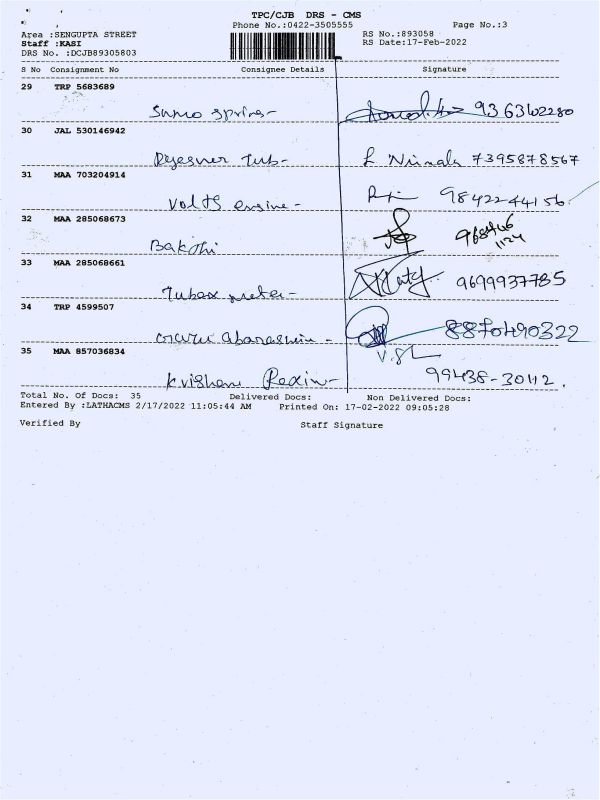 TPC/CJB DRS - CMS
Phone No.:0422-3505555 Page No.:3
Area :SENGUPTA STREET RS No.:893058
Staff :KASI RS Date:17-Feb-2022
DRS No. :DCJB89305803
S No Consignment No Consignee Details Signature
29 TRP 5683689
Sumo springs-
30 JAL 530146942
L Nirmala 7395878567
31 MAA 703204914
Volts engine- 9842244156
32 MAA 285068673
Bakthi
33 MAA 285068661
9699937785
34 TRP 4599507
8870490322
35 MAA 857036834
99438-30112.
Total No. Of Docs: 35 Delivered Docs: Non Delivered Docs:
Entered By :LATHACMS 2/17/2022 11:05:44 AM Printed On: 17-02-2022 09:05:28
Verified By Staff Signature